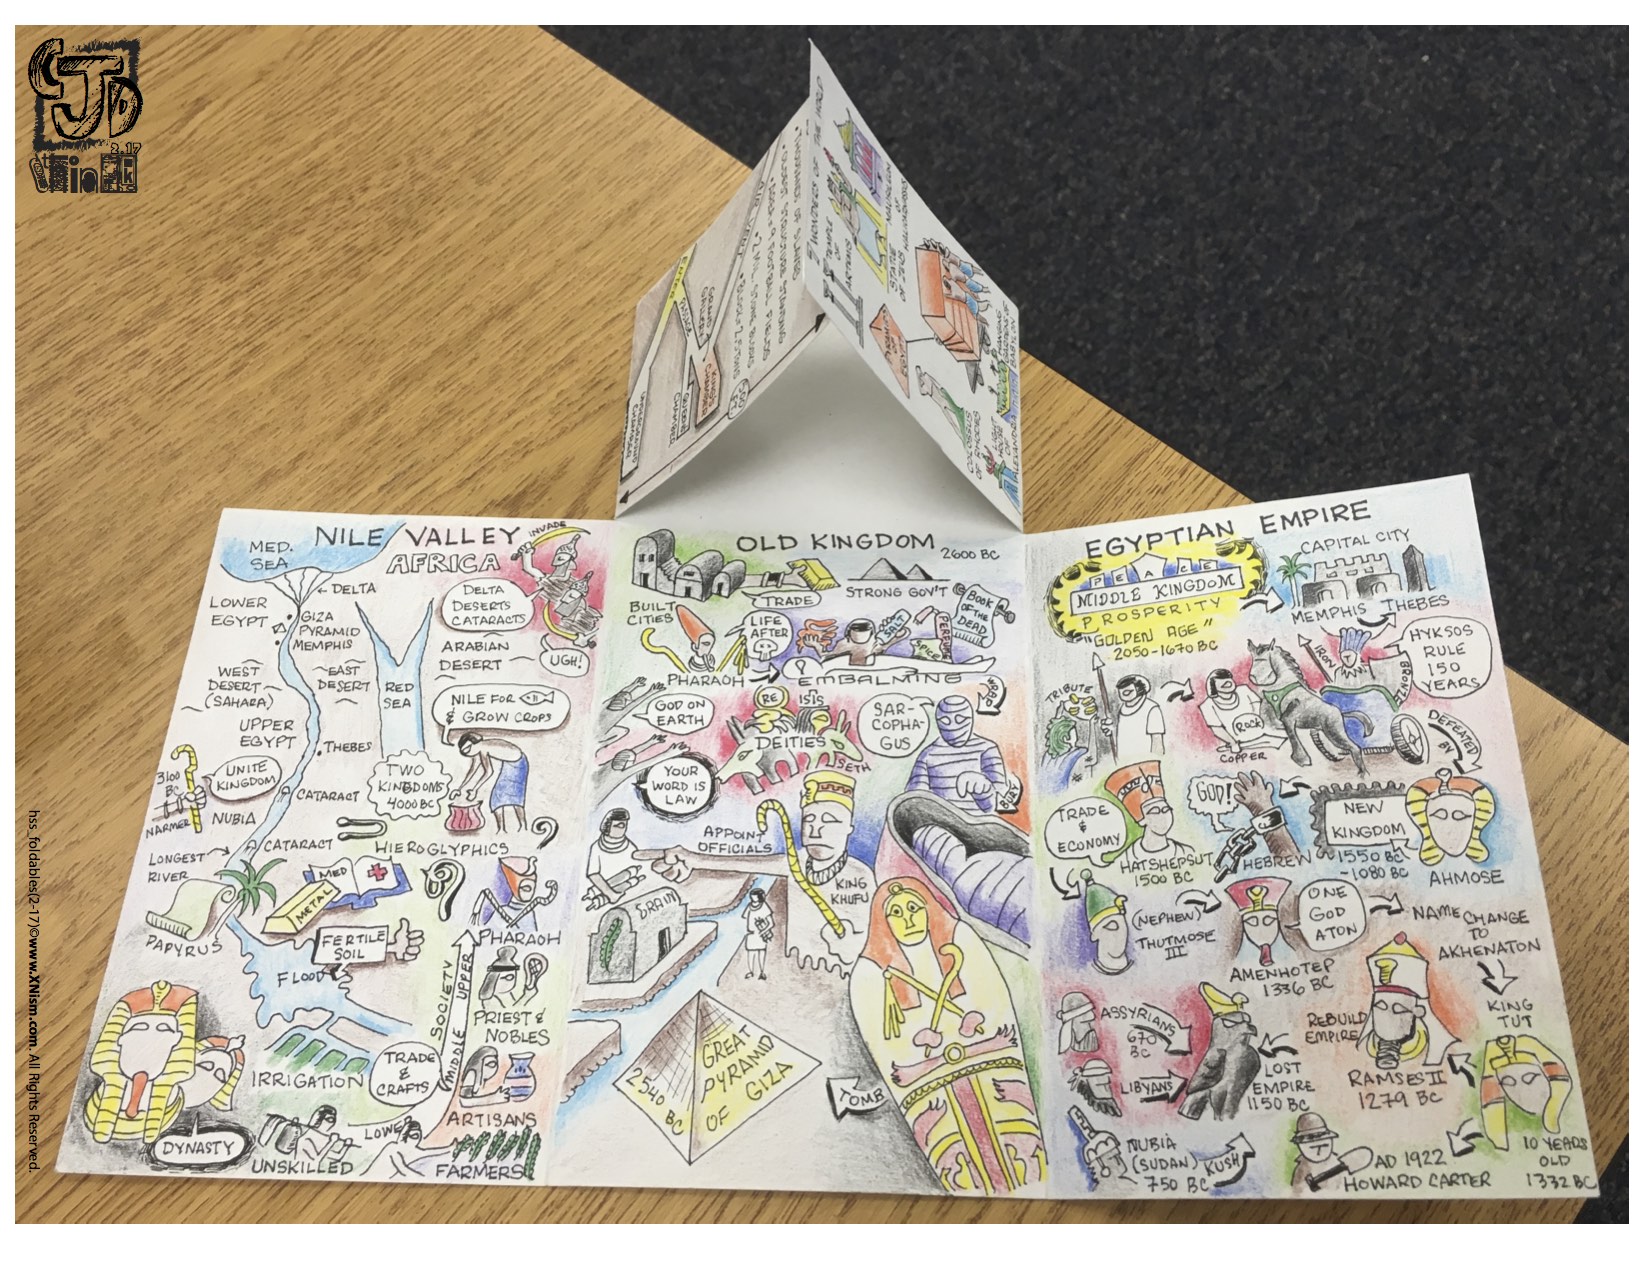 CJD
2.17
hss_foldables(2-17)©www.XNism.com. All Rights Reserved.
7 WONDERS OF THE WORLD
TEMPLE
OF
ARTEMIS
STATUE
OF ZEUS
MAUSOLEUM
OF
HALICARNASSUS
PYRAMID
OF
EGYPT
HANGING
GARDENS OF
BABYLON
COLOSSUS
OF RHODES
LIGHT
HOUSE
OF
ALEXANDRIA
AIR VENT
GRAND
GALLERY
KING'S
CHAMBER
QUEEN'S
CHAMBER
UNDERGROUND
CHAMBER
NILE VALLEY
AFRICA
INVADE
MED.
SEA
DELTA
LOWER
EGYPT
GIZA
PYRAMID
MEMPHIS
DELTA
DESERTS
CATARACTS
ARABIAN
DESERT
UGH!
WEST
DESERT
(SAHARA)
EAST
DESERT
RED
SEA
NILE FOR
& GROW CROPS
UPPER
EGYPT
THEBES
3100
BC
UNITE
KINGDOM
NARMER
CATARACT
TWO
KINGDOMS
4000BC
NUBIA
CATARACT
HIEROGLYPHICS
LONGEST
RIVER
MED
METAL
PAPYRUS
FERTILE
SOIL
FLOOD
PHARAOH
SOCIETY
UPPER
MIDDLE
LOWER
PRIEST &
NOBLES
TRADE
&
CRAFTS
IRRIGATION
ARTISANS
DYNASTY
UNSKILLED
FARMERS
OLD KINGDOM
2600 BC
BUILT
CITIES
TRADE
STRONG GOV'T
LIFE
AFTER
BOOK
OF THE
DEAD
SALT
SPICE
PERFUME
PHARAOH
EMBALMING
WRAP
GOD ON
EARTH
RE
ISIS
DEITIES
SETH
SAR-
COPHA-
GUS
YOUR
WORD IS
LAW
BURY
APPOINT
OFFICIALS
KING
KHUFU
GRAIN
GREAT
PYRAMID
OF GIZA
2540
BC
TOMB
EGYPTIAN EMPIRE
PEACE
MIDDLE KINGDOM
PROSPERITY
"GOLDEN AGE"
2050-1670 BC
CAPITAL CITY
MEMPHIS THEBES
HYKSOS
RULE
150
YEARS
IRON
BRONZE
TRIBUTE
ROCK
COPPER
DEFEATED
BY
TRADE
&
ECONOMY
GOD!
HEBREW
NEW
KINGDOM
1550 BC
-1080 BC
AHMOSE
HATSHEPSUT
1500 BC
(NEPHEW)
THUTMOSE
III
ONE
GOD
ATON
NAME CHANGE
TO
AKHENATON
AMENHOTEP
1336 BC
KING
TUT
ASSYRIANS
670
BC
LIBYANS
REBUILD
EMPIRE
RAMSES II
1279 BC
LOST
EMPIRE
1150 BC
NUBIA
(SUDAN)
750 BC
KUSH
AD 1922
HOWARD CARTER
10 YEARS
OLD
1332 BC